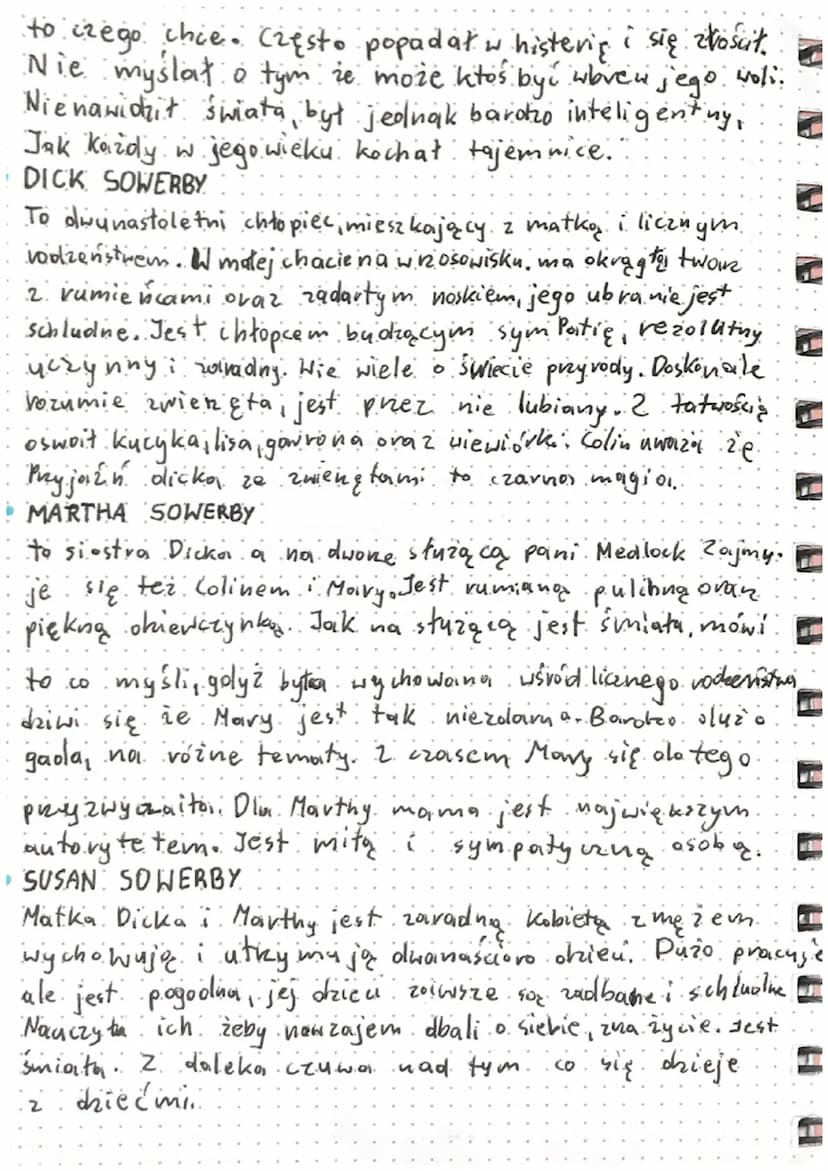 to czego chce. Często popadał w histerię i się złościł.
Nie myślał o tym że może ktoś być wbrew jego woli.
Nienawidził świata, był jednak bardzo inteligentny,
Jak każdy w jego wieku kochał tajemnice.
DICK SOWERBY
To dwunastoletni chłopiec, mieszkający z matką i licznym
rodzeństwem. W małej chacie na wrzosowisku. ma okrągłą twarz
z rumieńcami oraz zadartym noskiem, jego ubranie jest
schludne. Jest chłopcem budzącym sympatię, rezolutny
uczynny i zaradny. Wie wiele o świecie przyrody. Doskonale
rozumie zwierzęta, jest przez nie lubiany. Z łatwością
oswoił kucyka, lisa, gawrona oraz wiewiórki. Colin uważa że
Przyjaźń dicka ze zwierzętami to czarna magia.
MARTHA SOWERBY
to siostra Dicka a na dworze służącą pani Medlock Zajmu-
je się też Colinem i Mary. Jest rumianą pulchną oraz
piękną dziewczynką. Jak na służącą jest śmiała, mówi
to co myśli, gdyż była wychowana wśród licznego rodzeństwa
dziwi się że Mary jest tak niezdarna. Bardzo dużo
gada, na różne tematy. Z czasem Mary się do tego
przyzwyczaiła. Dla Marthy mama jest największym
autorytetem. Jest miłą i sympatyczną osobą.
SUSAN SOWERBY
Matka Dicka i Marthy jest zaradną kobietą z mężem
wychowują i utrzymują dwanaścioro dzieci. Dużo pracuje
ale jest pogodna, jej dzieci zawsze są zadbane i schludne
Nauczyła ich żeby nawzajem dbali o siebie, zna życie. Jest
śmiała. Z daleka czuwa nad tym co się dzieje
z dziećmi.